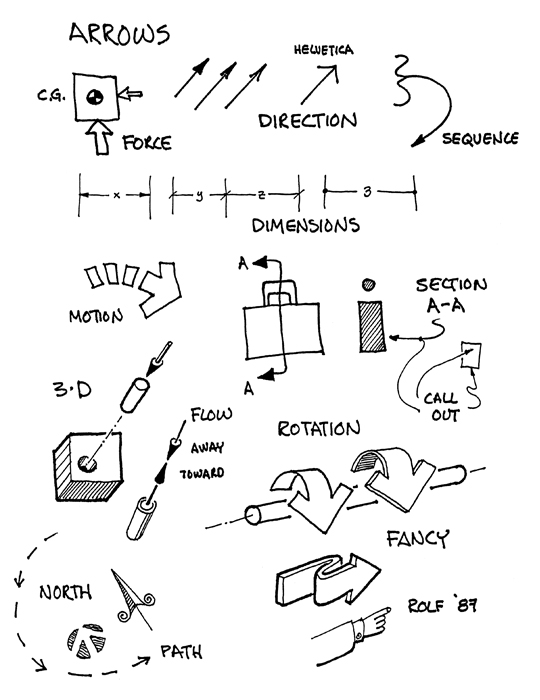 ARROWS
HELVETICA
C.G.
FORCE
DIRECTION
SEQUENCE
x
y
z
3
DIMENSIONS
A
MOTION
SECTION
A-A
A
3·D
CALL
OUT
FLOW
AWAY
TOWARD
ROTATION
FANCY
NORTH
ROLF '87
PATH